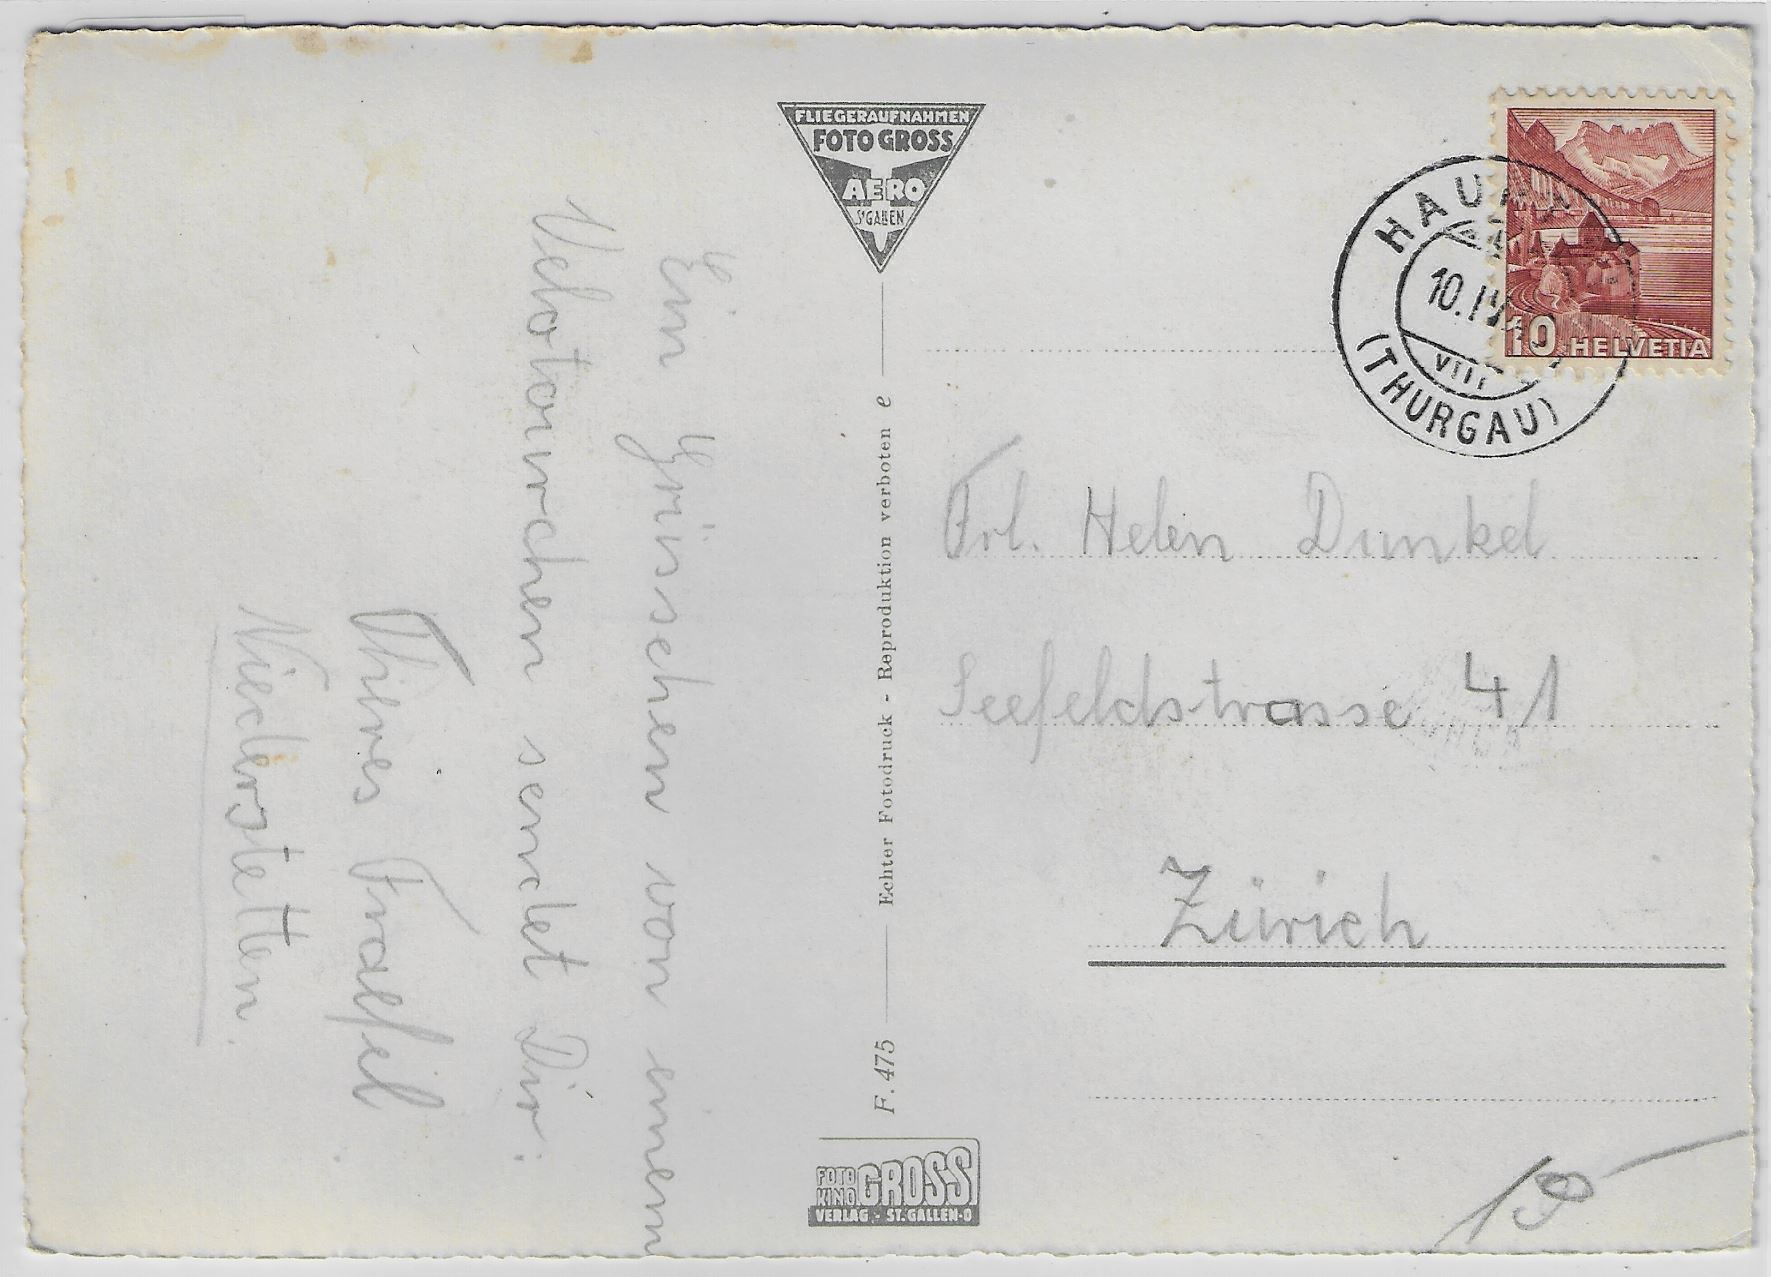 Ein Grüsschen von einem
Velotourchen sendet Dir:
Fraefel
Niederstetten.
FLIEGERAUFNAHMEN
FOTO GROSS
AERO
ST GALLEN
F. 475 Echter Fotodruck - Reproduktion verboten e
FOTO
KINO GROSS
VERLAG - ST. GALLEN-O
10 HELVETIA
10. IV
VIII
(THURGAU)
Frl. Helen Dunkel
Seefeldstrasse 41
Zürich